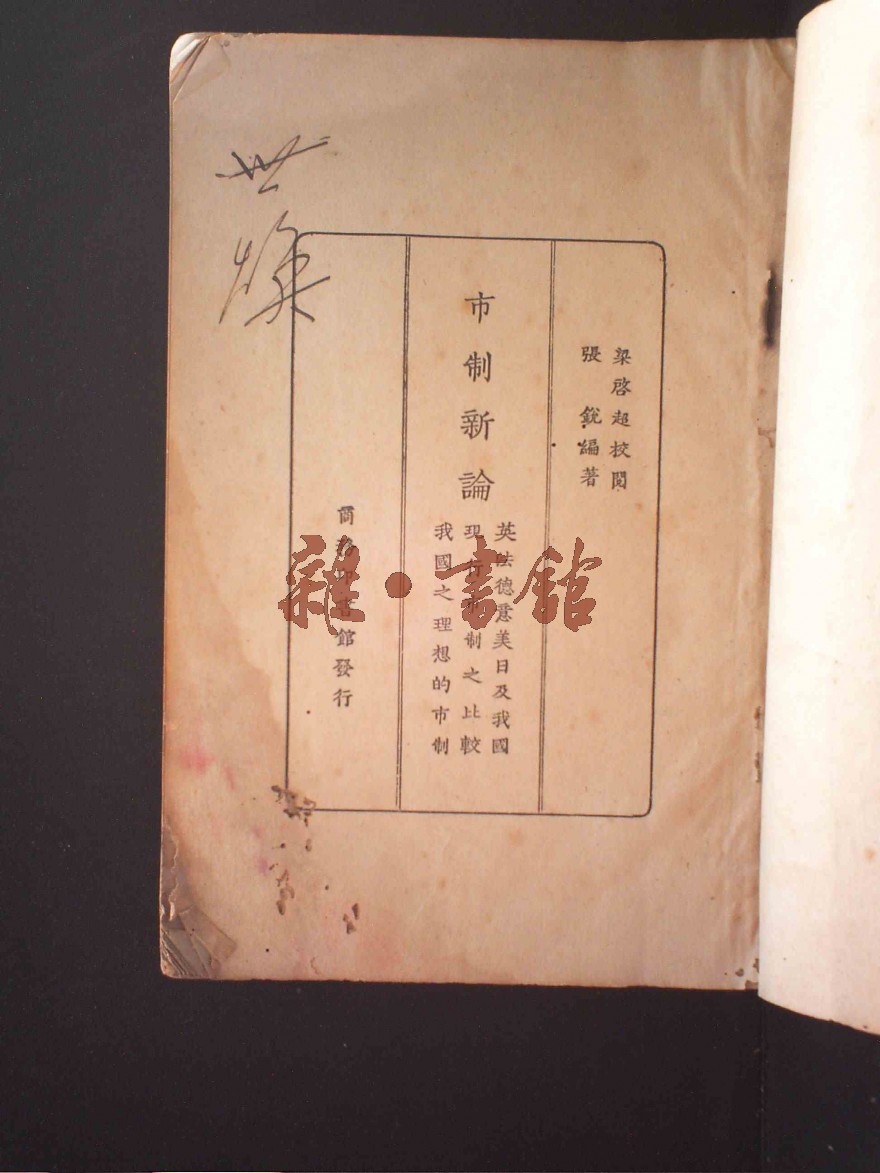 梁啓超校閱
張銳編著
市制新論
英法德意美日及我國
現行市制之比較
我國之理想的市制
商務印書館發行
世煥
雜·書館